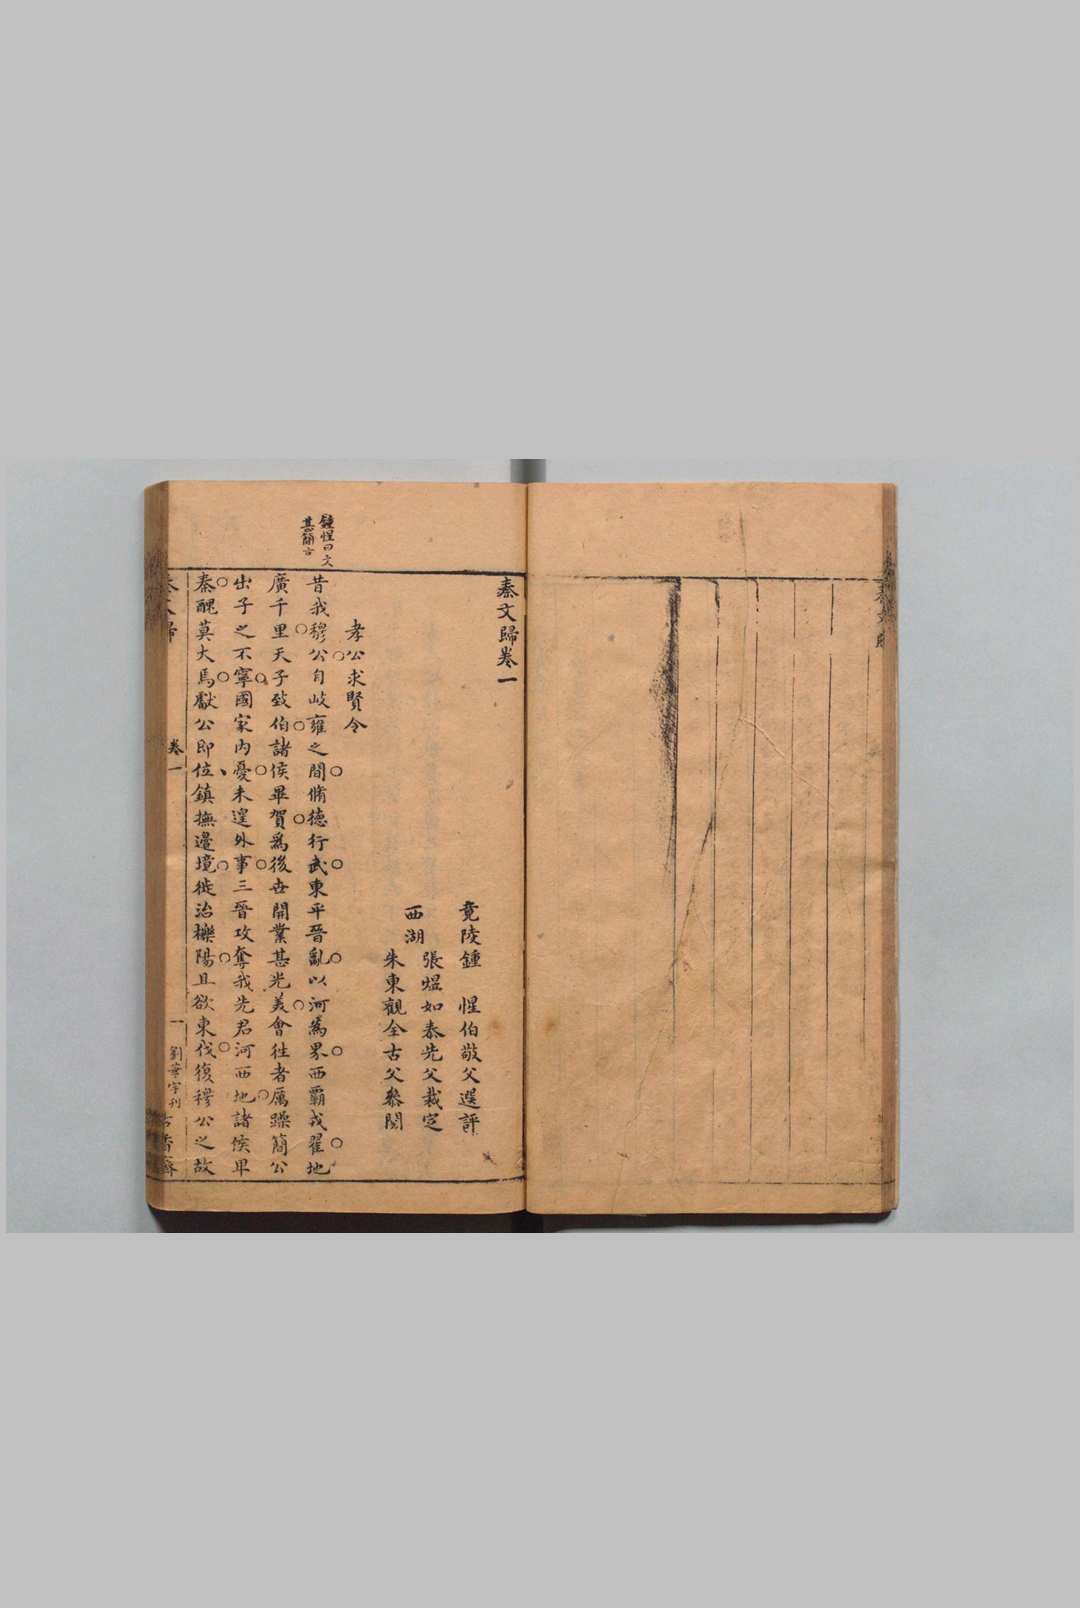 秦文歸卷一
竟陵鍾　惺伯敬父選評
西湖
張煜如泰先父裁定
朱東觀全古父叅閱
孝公求賢令
昔我穆公自岐雍之間脩德行武東平晉亂以河為界西霸戎翟地
廣千里天子致伯諸侯畢賀為後世開業甚光美會往者厲躁簡公
出子之不寧國家內憂未遑外事三晉攻奪我先君河西地諸侯卑
秦醜莫大焉獻公即位鎮撫邊境徙治櫟陽且欲東伐復穆公之故
鍾惺曰文
甚簡古
卷一
一
劉華宇刊
古香齋